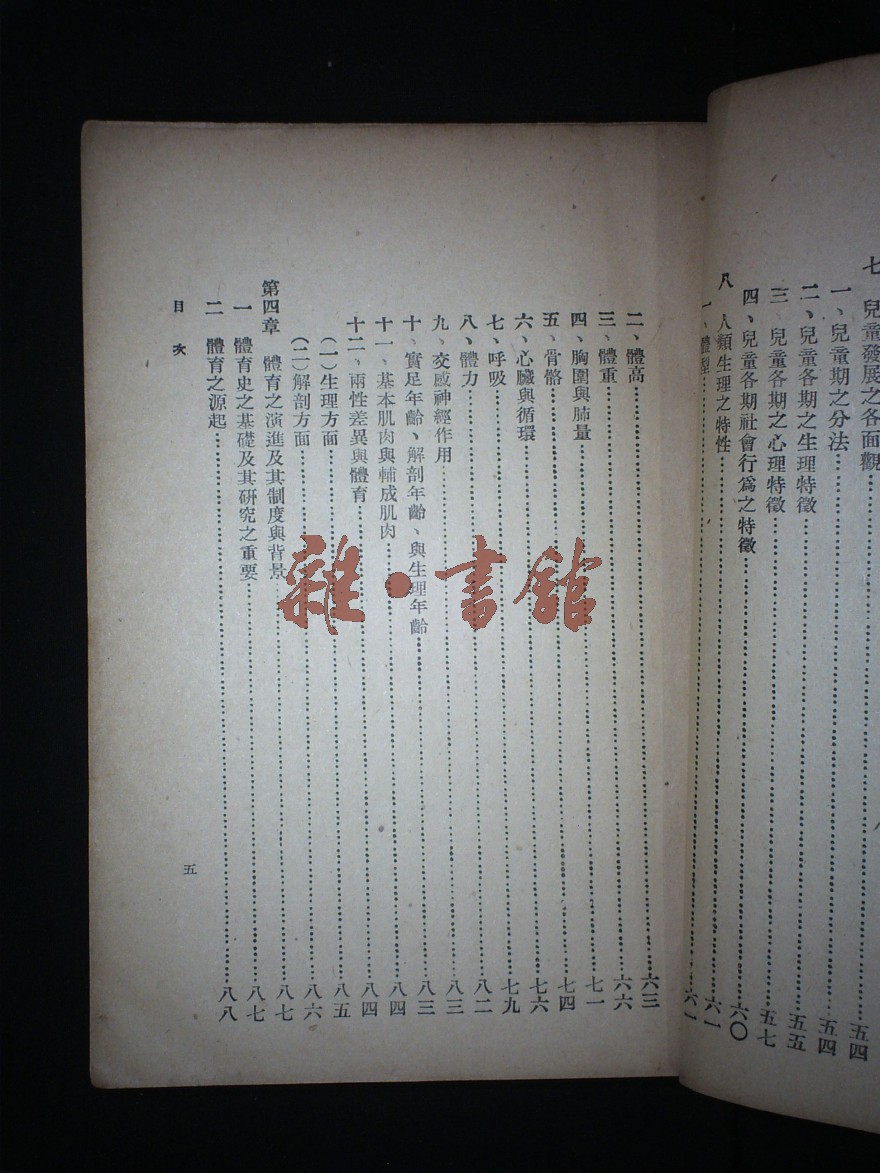 七 兒童發展之各面觀……五四
一、兒童期之分法……五四
二、兒童各期之生理特徵……五五
三、兒童各期之心理特徵……五七
四、兒童各期社會行爲之特徵……六〇
八 人類生理之特性……六一
一、體型……六一
二、體高……六三
三、體重……六六
四、胸圍與肺量……七一
五、骨骼……七四
六、心臟與循環……七六
七、呼吸……七九
八、體力……八二
九、交感神經作用……八三
十、實足年齡、解剖年齡、與生理年齡……八三
十一、基本肌肉與輔成肌肉……八四
十二、兩性差異與體育……八四
(一)生理方面……八五
(二)解剖方面……八六
第四章 體育之演進及其制度與背景……八七
一 體育史之基礎及其研究之重要……八七
二 體育之源起……八八
目次
五
雜·書館